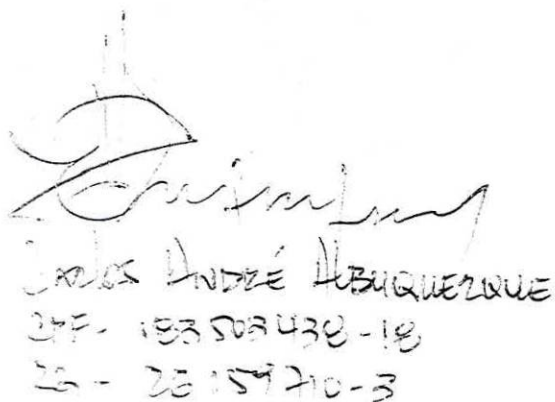 CARLOS ANDRÉ ALBUQUERQUE
CPF- 183503438-18
RG- 26159710-3